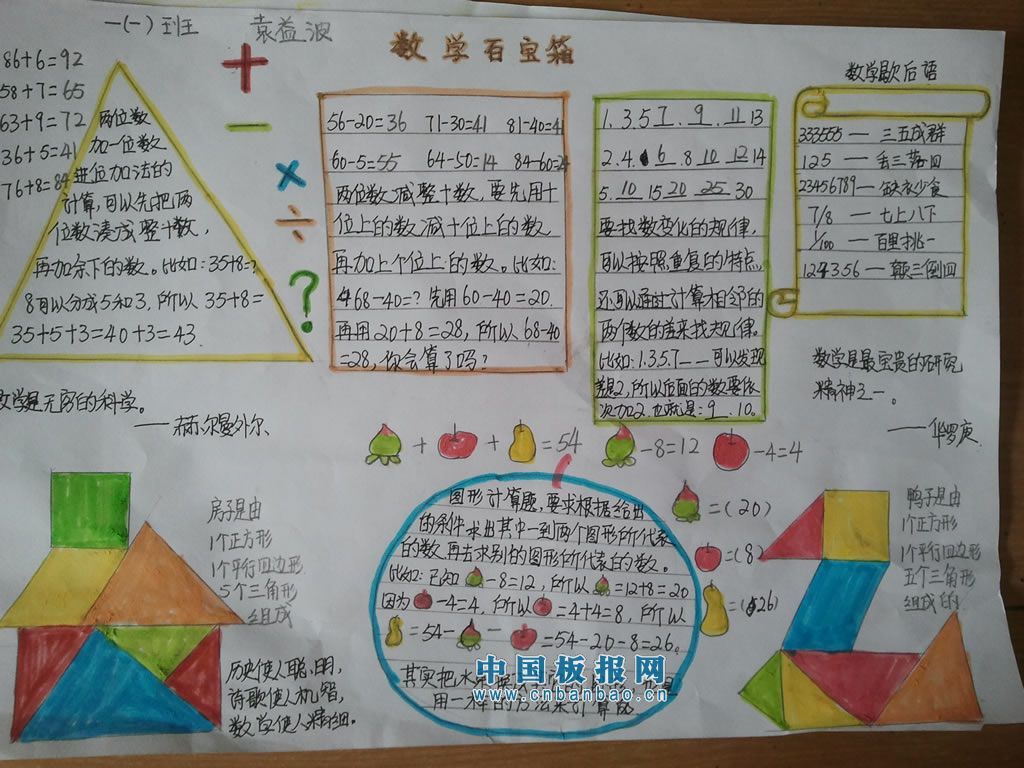 一(一)班 袁益波
数学百宝箱
86+6=92
58+7=65
63+9=72
36+5=41
76+8=84
两位数
加一位数
进位加法的
计算,可以先把两
位数凑成整十数,
再加余下的数。比如:35+8=?
8可以分成5和3,所以35+8=
35+5+3=40+3=43.
+
-
×
÷
?
56-20=36 71-30=41 81-40=41
60-5=55 64-50=14 84-60=24
两位数减整十数,要先用十
位上的数减十位上的数
再加上个位上的数。比如:
68-40=?先用60-40=20.
再用20+8=28,所以68-40
=28,你会算了吗?
1.3.5 7 . 9 . 11 13
2.4. 6 .8 10 12 14
5. 10 15 20 25 30
要找数变化的规律,
可以按照重复的特点,
还可以通过计算相邻的
两个数的差来找规律。
比如:1.3.5.7__可以发现
差是2,所以后面的数要依
次加2.也就是:9.10。
数学歇后语
333555—三五成群
125—丢三落四
23456789—缺衣少食
7/8—七上八下
1/100—百里挑一
124356—颠三倒四
数学是无穷的科学。
——赫尔曼外尔
数学是最宝贵的研究
精神之一。
——华罗庚
+ + =54 -8=12 -4=4
=(20)
=(8)
=(26)
图形计算题,要求根据给出
的条件求出其中一到两个图形所代表
的数,再去求别的图形所代表的数。
比如:已知 -8=12,所以 =12+8=20
因为 -4=4,所以 =4+4=8,所以
=54- - =54-20-8=26。
其实把水
用一样的方法来计算
房子是由
1个正方形
1个平行四边形
5个三角形
组成
历史使人聪明,
诗歌使人机智,
数学使人精细。
鸭子是由
1个正方形
1个平行四边形
五个三角形
组成的
中国板报网
www.cnbanbao.cn